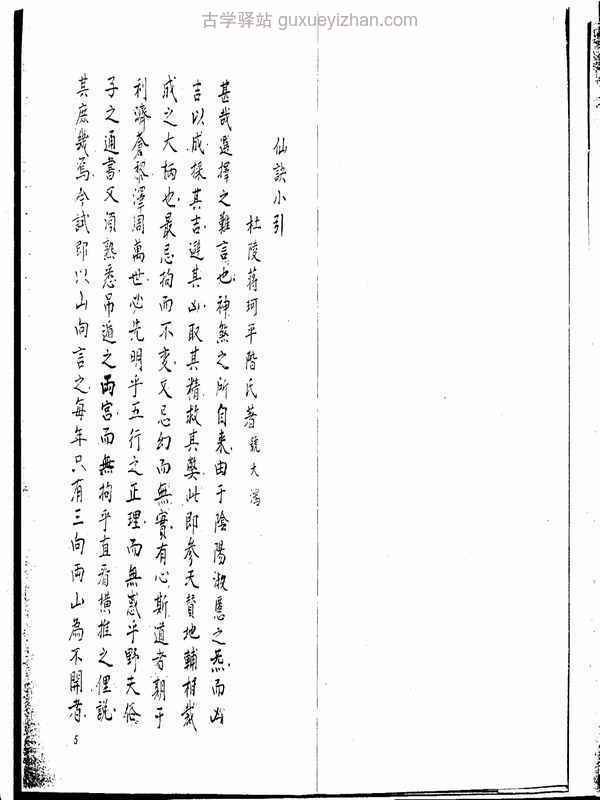 古学驿站 guxueyizhan.com
仙訣小引
杜陵蔣珂平階氏著號大鴻
甚哉選擇之難言也神煞之所自来由于陰陽淑慝之炁而凶
吉以成採其吉避其凶取其精救其弊此即參天贊地輔相裁
成之大柄也最忌拘而不变又忌幻而無實有心斯道者期于
利濟蒼黎澤周萬世必先明乎五行之正理而無惑乎野夫俗
子之通書又須熟悉吊遁之兩宮而無拘乎直看橫推之俚説
其庶幾焉今試即以山向言之每年只有三向两山為不開者
5